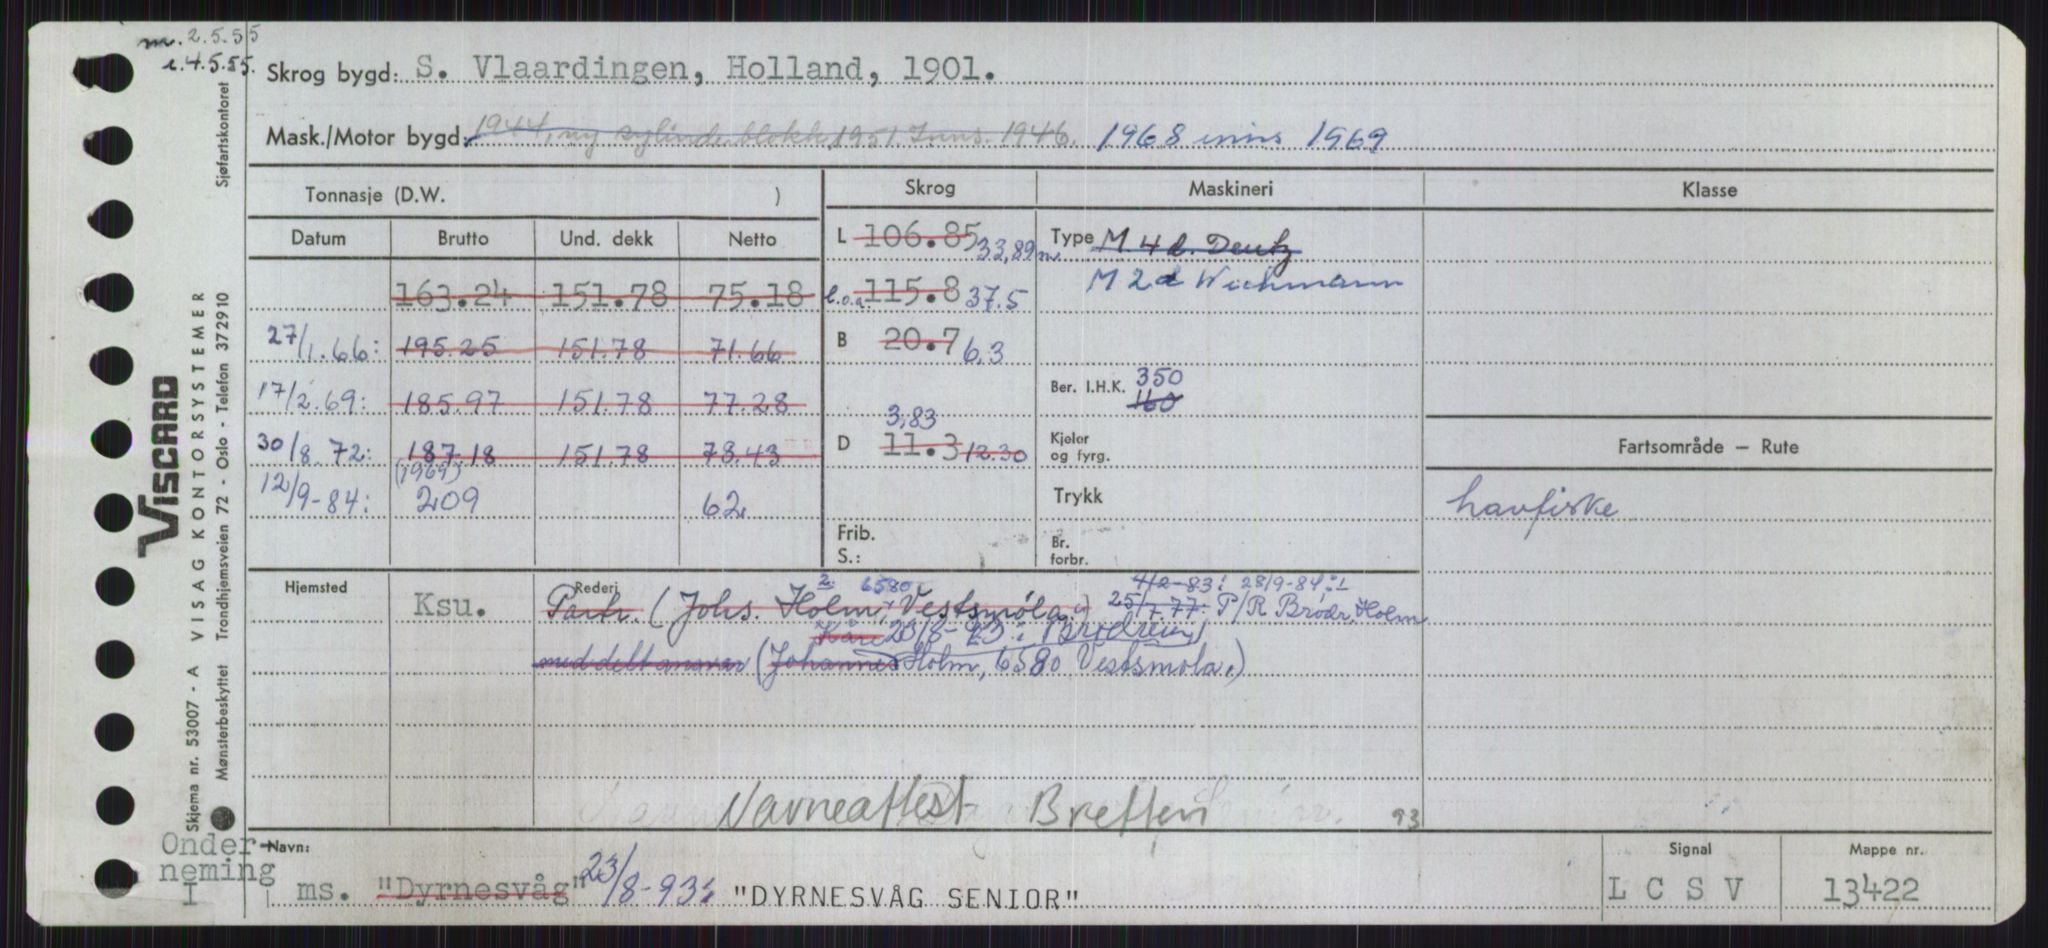 m. 2.5.55
i. 4.5.55.
Skrog bygd: S. Vlaardingen, Holland, 1901.
Mask./Motor bygd: 1944, ny sylinderblokk 1951. Inns. 1946. 1968 inns 1969
Tonnasje (D.W. )
Skrog
Maskineri
Klasse
Datum Brutto Und. dekk Netto
163.24 151.78 75.18
27/1.66: 195.25 151.78 71.66
17/2.69: 185.97 151.78 77.28
30/8.72: 187.18 151.78 78.43
(1969)
12/9-84: 209 62
L 106.85 33,89 m
l.o.a. 115.8 37.5
B 20.7 6,3
3,83
D 11.3 12.30
Frib.
S.:
Type M 4 d. Deutz
M 2 d Wichmann
Ber. I.H.K. 350
160
Kjeler
og fyrg.
Trykk
Br.
forbr.
Fartsområde — Rute
havfiske
Hjemsted
Rederi
Ksu.
2. 6580 4/2-83: 28/9-84:
Partr. (Johs. Holm, Vestsmøla.) 25/7 77: P/R Brødr. Holm
Kåre 23/8-93: Brødrene
med delt ansvar (Johannes Holm, 6580 Vestsmøla.)
Navneattest Bretten 93
Navn:
Onder-
neming
I
ms. "Dyrnesvåg" 23/8-93: "DYRNESVÅG SENIOR"
Signal
L C S V
Mappe nr.
13422
VISCARD
Skjema nr. 53007 - A VISAG KONTORSYSTEMER
Mønsterbeskyttet Trondhjemsveien 72 - Oslo - Telefon 372910
Sjøfartskontoret